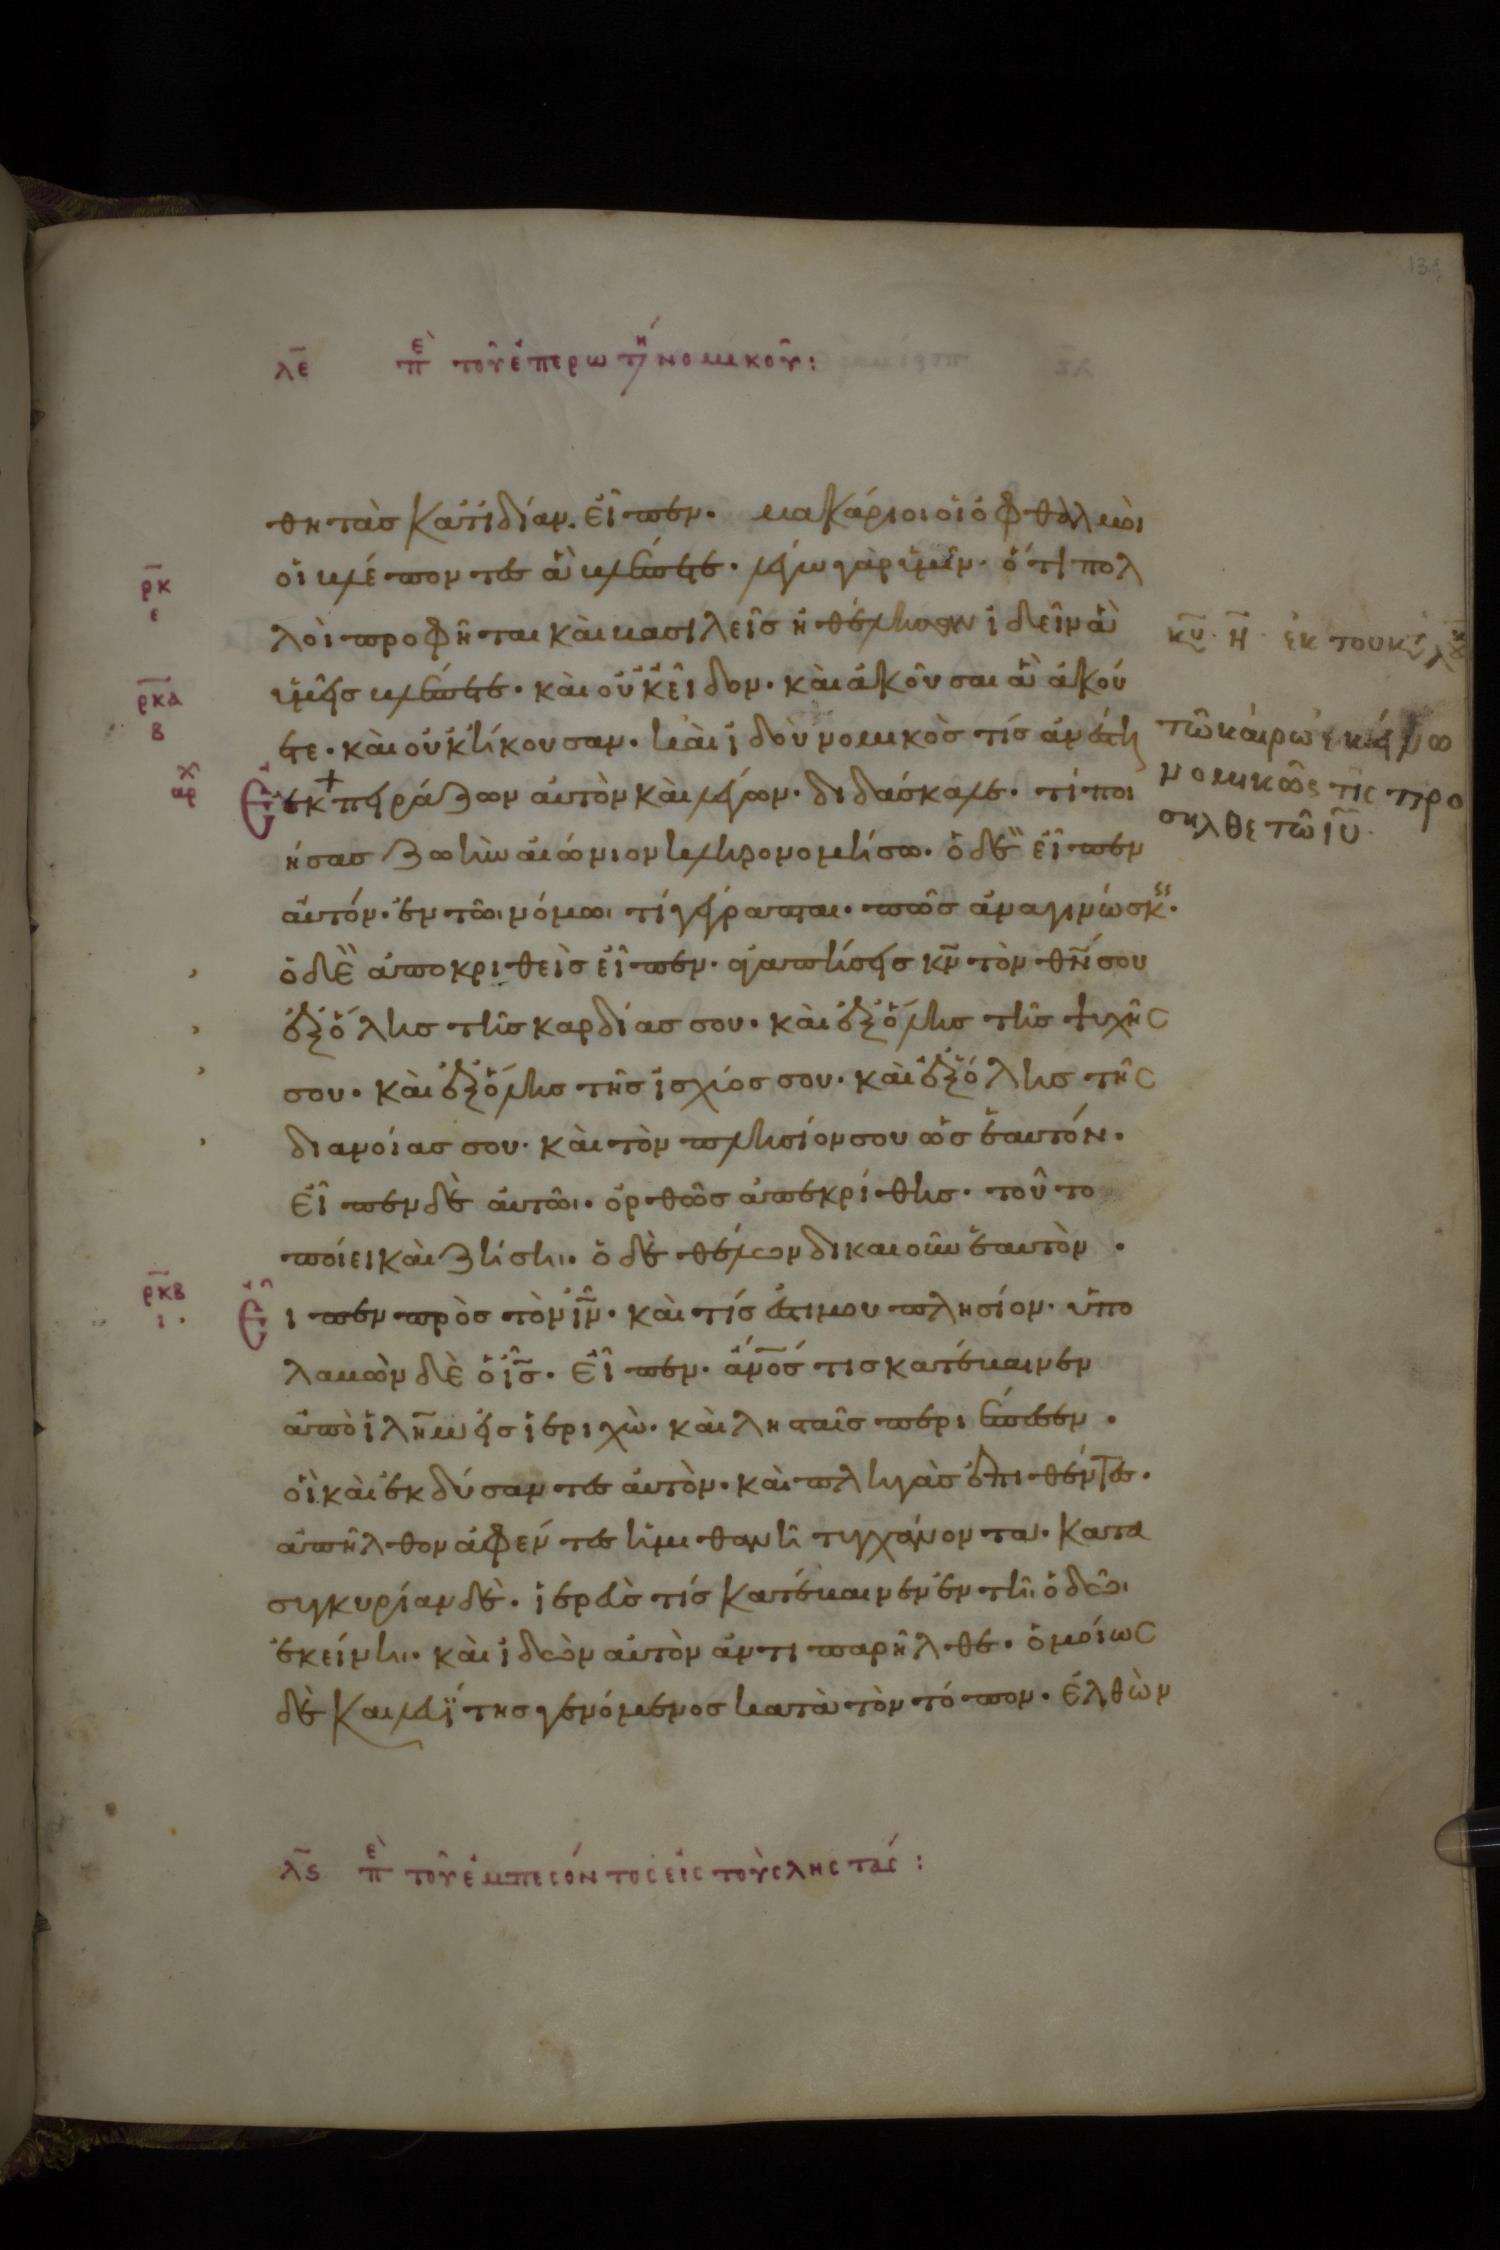 λε πε τοῦ ἐπερωτή νομικοῦ:
θητὰσ κατιδίαν. εἶπεν. μακάριοι οἱ ὀφθαλμοὶ
οἱ βλέποντες ἃ βλέπετε. λέγω γὰρ ὑμῖν. ὅτι πολ
λοὶ προφῆται καὶ βασιλεῖσ ἠθέλησαν ἰδεῖν ἃ
ὑμεῖσ βλέπετε. καὶ οὐκ εἶδον. καὶ ἀκοῦσαι ἃ ἀκού
ετε. καὶ οὐκ ἤκουσαν. καὶ ἰδοὺ νομικὸσ τίσ ἀνέστη
ἐκπειράζων αὐτὸν καὶ λέγων. διδάσκαλε. τί ποι
ήσασ ζωὴν αἰώνιον κληρονομήσω. ὁ δὲ εἶπεν
αὐτόν. ἐν τῶι νόμωι τί γέγραπται. πῶσ ἀναγινώσκ.
ὁ δὲ ἀποκριθεὶσ εἶπεν. ἀγαπήσεισ κν τὸν θν σου
ἐξ ὅλησ τῆσ καρδίασ σου. καὶ ἐξ ὅλησ τῆσ ψυχῆσ
σου. καὶ ἐξ ὅλησ τῆσ ἰσχύοσ σου. καὶ ἐξ ὅλησ τῆσ
διανοίασ σου. καὶ τὸν πλησίον σου ὡσ ἑαυτόν.
εἶπεν δὲ αὐτῶι. ὀρθῶσ ἀπεκρίθησ. τοῦτο
ποίει καὶ ζήσηι. ὁ δὲ θέλων δικαιοῦν ἑαυτὸν.
Εἶπεν πρὸσ τὸν ιν. καὶ τίσ ἐστι μου πλησίον. ὑπο
λαβὼν δὲ ὁ ισ. εἶπεν. ανοσ τισ κατέβαινεν
ἀπὸ ιλημ εἰσ ἱεριχὼ. καὶ λησταῖσ περιέπεσεν.
οἳ καὶ ἐκδύσαντες αὐτὸν. καὶ πληγὰσ ἐπιθέντες.
ἀπῆλθον ἀφέντες ἡμιθανῆ τυγχάνοντα. κατα
συγκυρίαν δὲ. ἱερεὺσ τίσ κατέβαινεν ἐν τῆι ὁδῶι
ἐκείνηι. καὶ ἰδὼν αὐτὸν ἀντιπαρῆλθε. ὁμοίωσ
δὲ καὶ λευΐτησ γενόμενοσ κατὰ τὸν τόπον. ἐλθὼν
λς πε τοῦ ἐμπεσόντοσ εἰσ τοὺσ ληστάσ:
ρκ
ε
ρκα
β
αρχ
ρκβ
ι
κυ. η. ἐκ του κ
τῶ καιρῶ ἐκείνω
νομικῶς τὶς προ
σηλθε τῶ ιυ